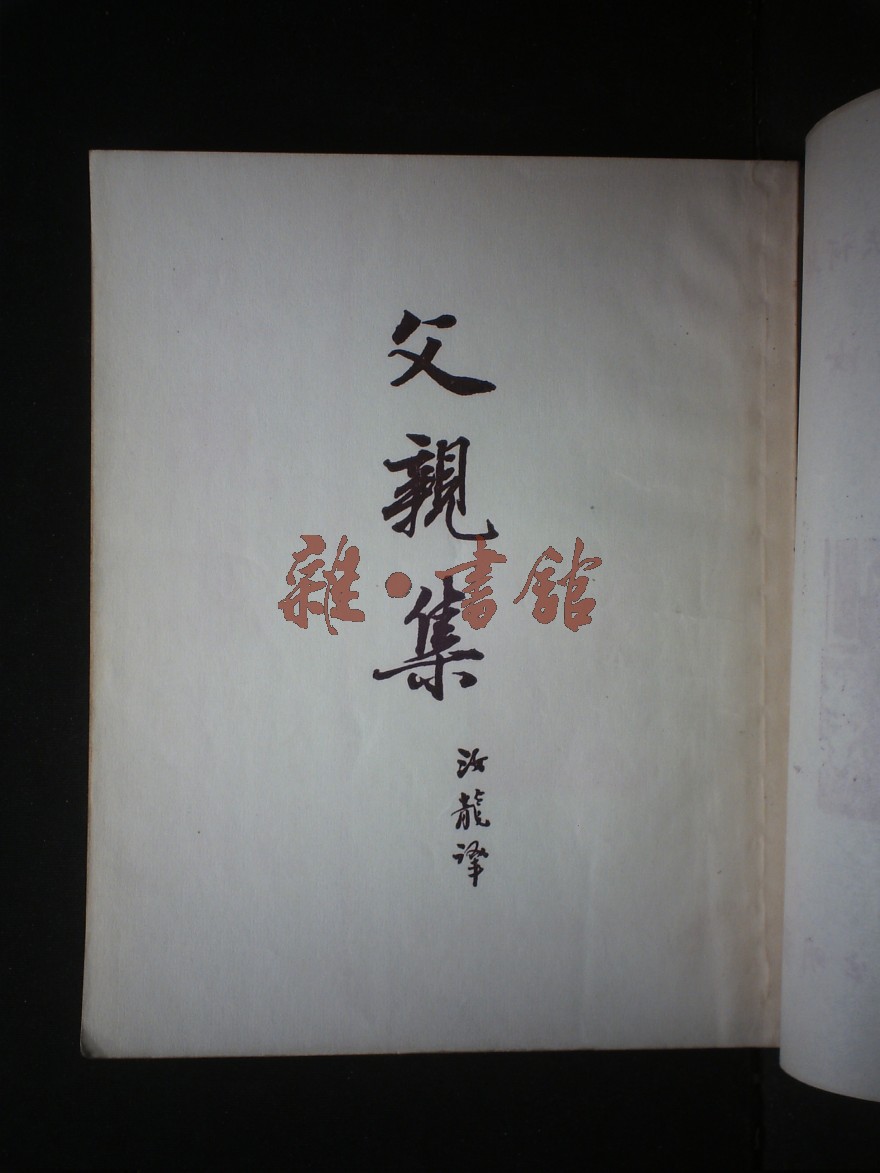 父親集
雜·書館
汝龍譯